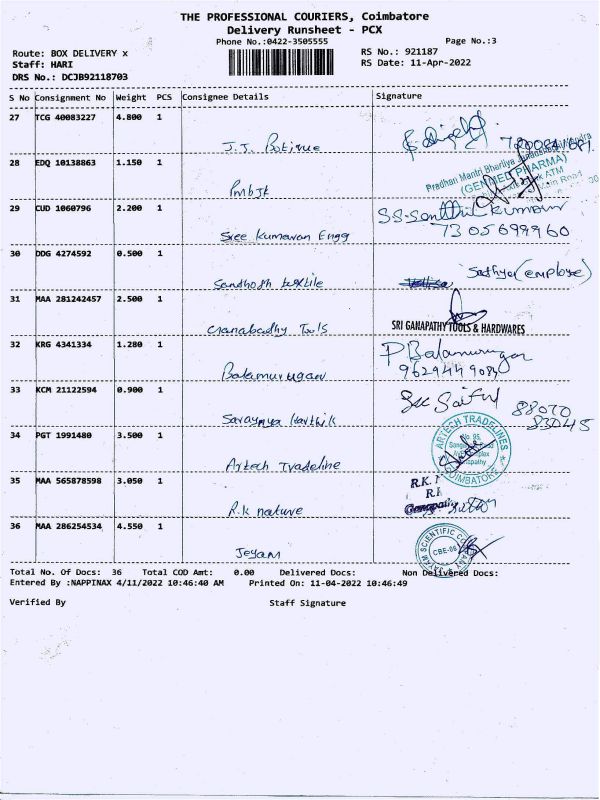 THE PROFESSIONAL COURIERS, Coimbatore
Delivery Runsheet - PCX
Phone No.:0422-3505555 Page No.:3
Route: BOX DELIVERY x RS No.: 921187
Staff: HARI RS Date: 11-Apr-2022
DRS No.: DCJB92118703
S No Consignment No Weight PCS Consignee Details Signature
27 TCG 40083227 4.800 1
J.J. Botique
28 EDQ 10138863 1.150 1
Pradhan Mantri Bhartiya
(GENMED PHARMA)
PmbJk
29 CUD 1060796 2.200 1 SS-Senthil Kumar
Sree Kumaran Engg 7305699960
30 DDG 4274592 0.500 1
Sandhosh textile Sathya (employe)
31 MAA 281242457 2.500 1
Ganabadhy Tools SRI GANAPATHY TOOLS & HARDWARES
32 KRG 4341334 1.280 1 P Balamurugan
Balamurugan
33 KCM 21122594 0.900 1
Saraynya Karthik
34 PGT 1991480 3.500 1 ARTECH TRADELINES
No. 95,
COIMBATORE
Artech Tradeline
35 MAA 565878598 3.050 1 R.K.
R.K
R.k nature Ganapathy
36 MAA 286254534 4.550 1 JAYAM SCIENTIFIC COMPANY
CBE-06
Jeyam
Total No. Of Docs: 36 Total COD Amt: 0.00 Delivered Docs: Non Delivered Docs:
Entered By :NAPPINAX 4/11/2022 10:46:40 AM Printed On: 11-04-2022 10:46:49
Verified By Staff Signature